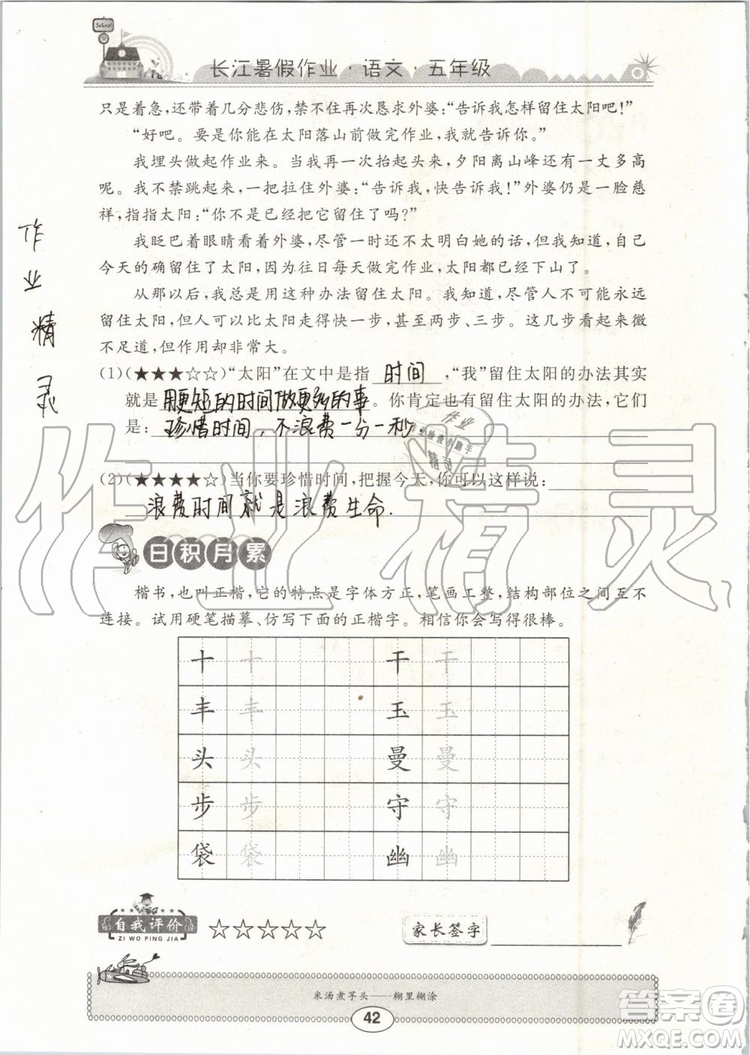 School
长江暑假作业·语文·五年级
只是着急，还带着几分悲伤，禁不住再次恳求外婆：“告诉我怎样留住太阳吧！”
“好吧。要是你能在太阳落山前做完作业，我就告诉你。”
我埋头做起作业来。当我再一次抬起头来，夕阳离山峰还有一丈多高
呢。我不禁跳起来，一把拉住外婆：“告诉我，快告诉我！”外婆仍是一脸慈
祥，指指太阳：“你不是已经把它留住了吗？”
我眨巴着眼睛看着外婆，尽管一时还不太明白她的话，但我知道，自己
今天的确留住了太阳，因为往日每天做完作业，太阳都已经下山了。
从那以后，我总是用这种办法留住太阳。我知道，尽管人不可能永远
留住太阳，但人可以比太阳走得快一步，甚至两步、三步。这步看起来微
不足道，但作用却非常大。
作业精灵
(1)(★★★☆☆)“太阳”在文中是指 时间 ，“我”留住太阳的办法其实
就是 用更短的时间做更多的事 。你肯定也有留住太阳的办法，它们
是： 珍惜时间，不浪费一分一秒。
(2)(★★★★★)当你要珍惜时间，把握今天，你可以这样说：
浪费时间就是浪费生命.
作业精灵
作业
精灵
日积月累
楷书，也叫正楷，它的特点是字体方正，笔画工整，结构部位之间互不
连接。试用硬笔描摹、仿写下面的正楷字。相信你会写得很棒。
十 十 干 干
丰 丰 玉 玉
头 头 曼 曼
步 步 守 守
袋 袋 幽 幽
自我评价 ☆☆☆☆☆ 家长签字
ZI WO PING JIA
米汤煮芋头——糊里糊涂
42
答案圈
MXQE.COM